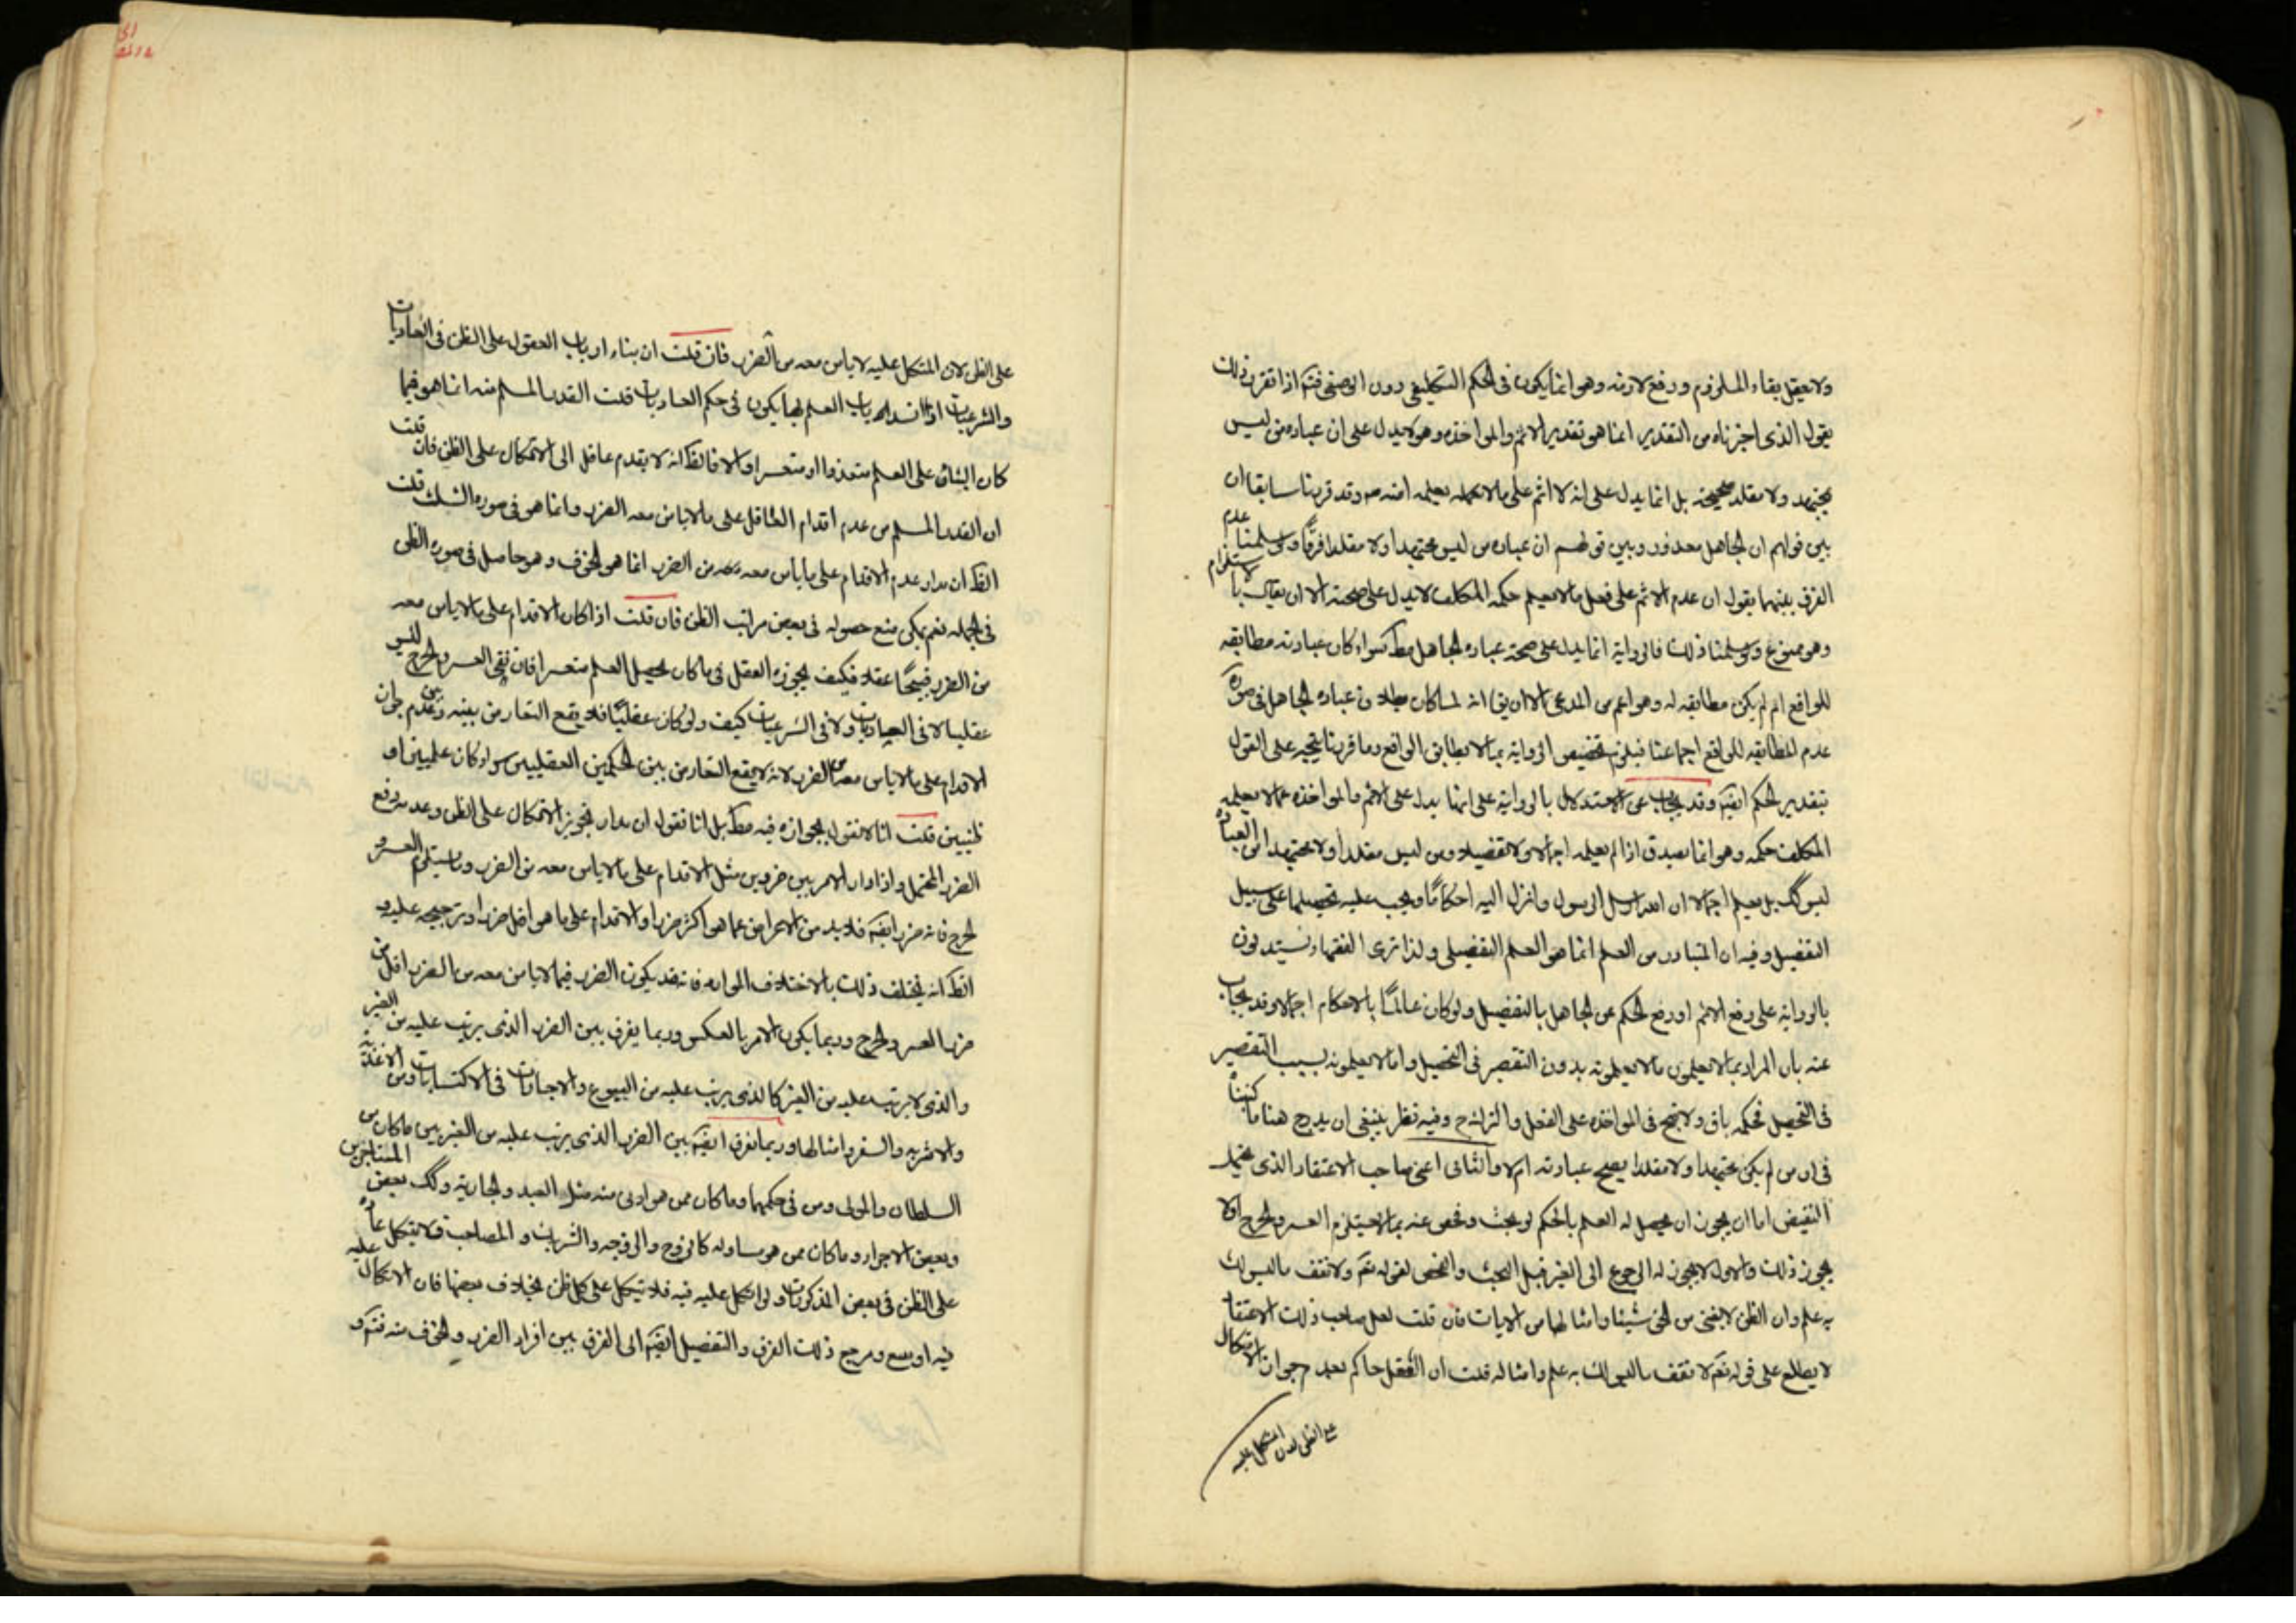 ولا يعقل بقاء الملزوم ورفع لازمه وهو انما يكون في الحكم التكليفي دون الوضعي فتم اذا تقرر ذلك
نقول الذي اخترناه من التقدير انما هو تقدير الاثم والمواخذه وهو لا يدل على ان عباده من ليس
بمجتهد ولا مقلد صحيحة بل انما يدل على انه لا اثم على ما لا يعلمه وقد قررنا سابقا ان
بين قولهم ان الجاهل معذور وبين قولهم ان عباده من ليس مجتهدا ولا مقلدا فرقا ولو سلمنا عدم
الفرق بينهما نقول ان عدم الاثم على فعل ما لا يعلم حكمه المكلف لا يدل على صحته الا ان يقال بالاستلزام
وهو ممنوع ولو سلمنا ذلك فالرواية انما يدل على صحة عباده الجاهل مط سواء كان عبادته مطابقه
للواقع ام لم يكن مطابقه له وهو اعم من المدعى الا ان يق انه لما كان بطلان عباده الجاهل في صورة
عدم المطابقه للواقع اجماعنا فيلزم تخصيص الرواية بما لا يطابق الواقع وما قررنا يتجه على القول
بتقدير الحكم ايضا وقد يجاب عن الاستدلال بالرواية على انها يدل على الاثم والمواخذه عما لا يعلمه
المكلف حكمه وهو انما يصدق اذا لم يعلمه اجمالا ولا تفصيلا ومن ليس مقلدا ولا مجتهدا في العباده
ليس كك بل يعلم اجمالا ان الله ارسل الرسول وانزل اليه احكاما ويجب عليه تحصيلها على سبيل
التفصيل وفيه ان المتبادر من العلم انما هو العلم التفصيلي ولذا ترى الفقهاء يستدلون
بالرواية على رفع الاثم او رفع الحكم عن الجاهل بالتفصيل ولو كان عالما بالاحكام اجمالا وقد يجاب
عنه بان المراد بما لا يعلمون ما لا يعلمونه بدون التقصير في التحصيل واما لا يعلمونه بسبب التقصير
في التحصيل فحكمه باق ولا يقبح في المواخذه على الفعل والترك ح وفيه نظر ينبغي ان يدرج هنا ما كتبنا
في ان من لم يكن مجتهدا ولا مقلدا يصح عبادته ام لا والثاني اعني صاحب الاعتقاد الذي يحتمل
النقيض اما ان يجوز ان يحصل له العلم بالحكم لو بحث وفحص عنه بما لا يستلزم العسر والحرج او لا
يجوز ذلك والاول لا يجوز له الرجوع الى الغير قبل البحث والفحص لقوله تعم ولا تقف ما ليس لك
به علم وان الظن لا يغني من الحق شيئا وامثالها من الايات فان قلت لعل صاحب ذلك الاعتقاد
لا يطلع على قوله تعم لا تقف ما ليس لك به علم وامثاله قلت ان العقل حاكم بعدم جواز الاتكال
على الظن لان المتكل عليه
على الظن لان المتكل عليه لا ياس معه من الضرر فان قلت ان بناء ارباب العقول على الظن في العاديات
والشرعيات اذا انسداد باب العلم بها يكون في حكم العاديات قلت القدر المسلم منه انما هو فيما
كان البناء على العلم متعذرا او متعسرا والا فالظ انه لا يقدم عاقل الى الاتكال على الظن فان قلت
ان القدر المسلم من عدم اقدام العاقل على ما لا ياس معه الضرر وانما هو في صوره الشك قلت
الظ ان مدار عدم الاقدام على ما ياس معه من الضرر انما هو الخوف وهو حاصل في صوره الظن
في الجمله نعم يمكن منع حصوله في بعض مراتب الظن فان قلت اذا كان الاقدام على ما لا ياس معه
من الضرر قبيحا عقلا فكيف يجوزه العقل في ما كان تحصيل العلم متعسرا فان نفي العسر والحرج ليس
عقليا لا في العاديات ولا في الشرعيات كيف ولو كان عقليا فلا يقع التعارض بينه وبين عدم جواز
الاقدام على ما لا ياس معه من الضرر لانه لا يقع التعارض بين الحكمين العقليين سواء كان علميين او
ظنيين قلت انا لا نقول بجوازه فيه مط بل انا نقول ان مدار تجويز الاتكال على الظن وعدمه دفع
الضرر المحتمل واذا دار الامر بين ضررين مثل الاقدام على ما لا ياس معه من الضرر وما يستلزم العسر و
الحرج فانه ضرر ايضا فلا بد من الاعراض عما هو اكثر ضررا والاقدام على ما هو اقل ضررا وترجيحه عليه و
الظ انه يختلف ذلك بالاختلاف الموارد فانه قد يكون الضرر فيما لا ياس معه من الضرر اقل من
ضرر العسر والحرج وربما يكون الامر بالعكس وربما يفرق بين الضرر الذي يرتب عليه من الغير
والذي لا يرتب عليه من الغير كالذي يرتب عليه من البيوع والاجارات في الاكتسابات ومن الاغذية
والاشربه والسفر وامثالها وربما يفرق ايضا بين الضرر الذي يرتب عليه من الغير بين ما كان من
السلطان والمولى ومن في حكمهما وما كان ممن هو ادنى منه مثل العبد والجارية وكك بعض المستاجرين
وبعض الاجراء وما كان ممن هو مساو له كالزوج والزوجه والشريك والمصاحب فلا يتكل عاده
على الظن في بعض المذكورات ولو اتكل عليه فيه فلا يتكل على كل ظن بخلاف بعضها فان الاتكال عليه
فيه اوسع ومرجع ذلك الفرق والتفصيل ايضا الى الفرق بين افراد الضرر والخوف منه فتم و